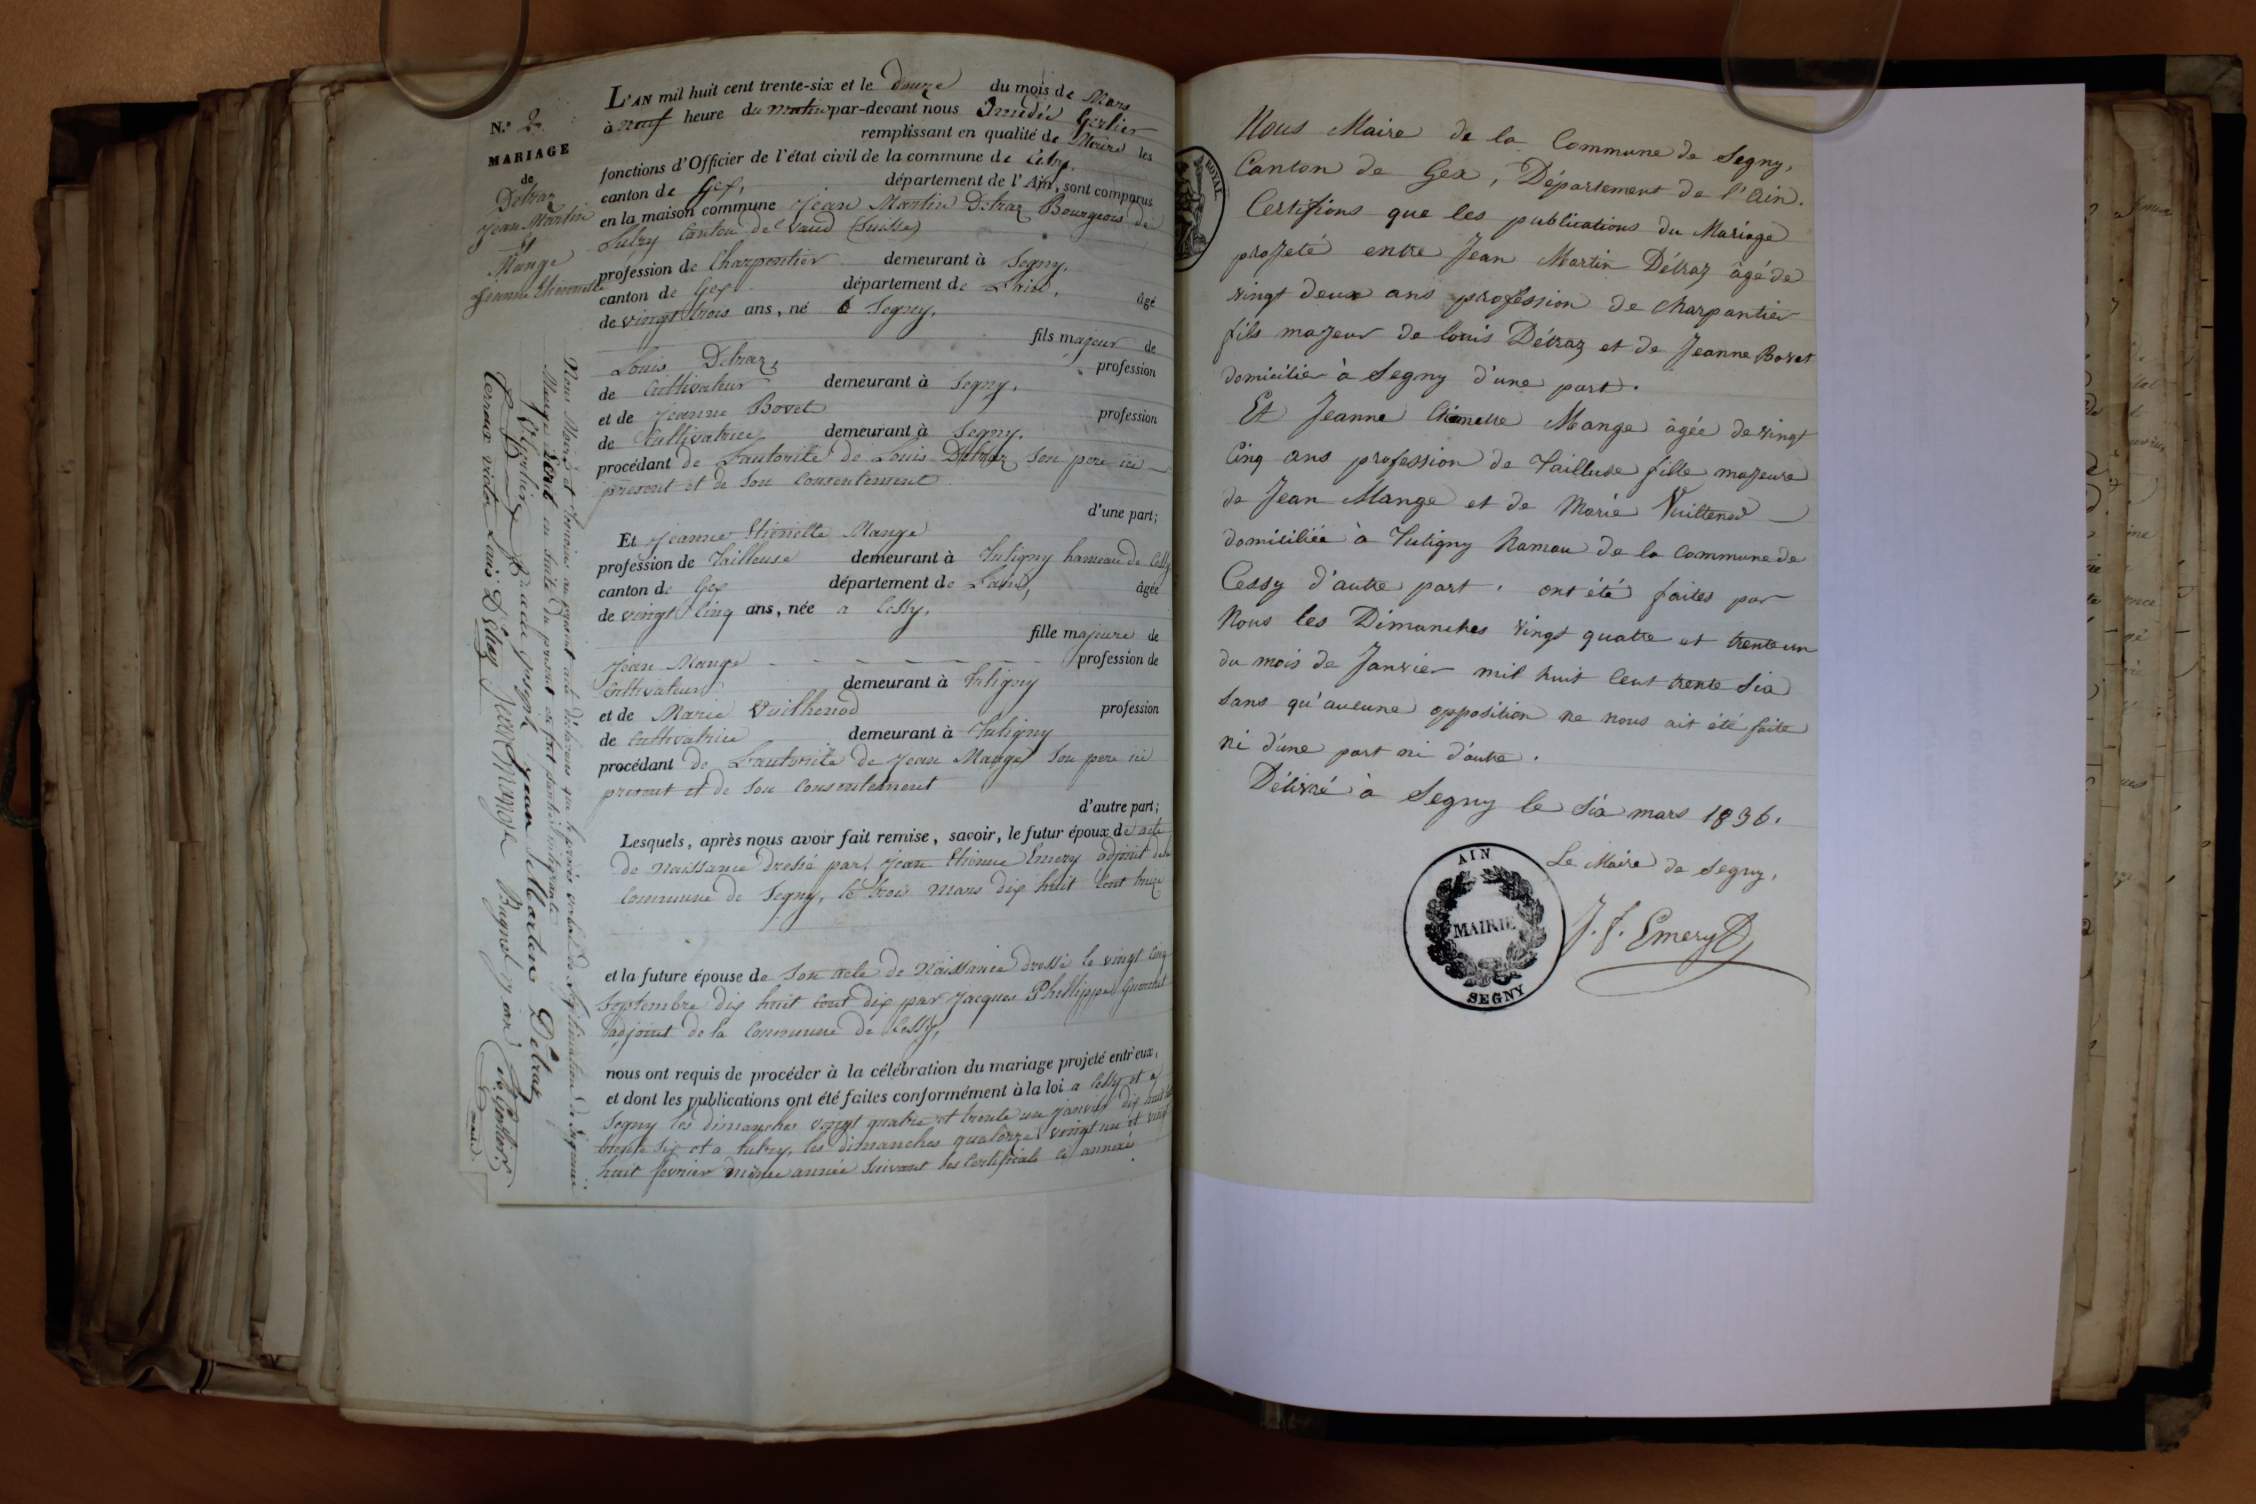 N.° 2.
MARIAGE
de
Detraz
Jean Martin
Et
Mange
Jeanne Etiennette
L'AN mil huit cent trente-six et le douze du mois de Mars
à neuf heure du matin par-devant nous Amédée Gerlier
remplissant en qualité de Maire les
fonctions d'Officier de l'état civil de la commune de Cessy,
canton de Gex, département de l'Ain, sont comparus
en la maison commune Jean Martin Detraz Bourgeois de
Lutry Canton de Vaud (Suisse)
profession de Charpentier demeurant à Segny,
canton de Gex département de L'ain, âgé
de vingt trois ans, né à Segny,
fils majeur de
Louis Detraz, profession
de Cultivateur demeurant à Segny,
et de Jeanne Bovet profession
de Cultivatrice demeurant à Segny,
procédant de L'autorité de Louis Detraz Son pere ici
présent et de Son Consentement
d'une part;
Et Jeanne Etienette Mange
profession de Tailleuse demeurant à Tutigny hameau de Cessy
canton de Gex département de L'ain, âgée
de vingt Cinq ans, née a Cessy,
fille majeure de
Jean Mange profession de
Cultivateur demeurant à Tutigny
et de Marie Vuilhenod profession
de Cultivatrice demeurant à Tutigny
procédant de L'autorité de Jean Mange Son pere ici
present et de Son Consentement
d'autre part;
Lesquels, après nous avoir fait remise, savoir, le futur époux de acte
de Naissance dressé par Jean Etienne Emery adjoint de la
Commune de Segny, le trois Mars dix huit Cent treize
et la future épouse de Son acte de Naissance dressé le vingt Cinq
Septembre dix huit Cent dix par Jacques Phellippe
adjoint de la Commune de Cessy,
nous ont requis de procéder à la célébration du mariage projeté entr'eux,
et dont les publications ont été faites conformément à la loi a Cessy et a
Segny les dimanches vingt quatre et trente un janvier dix huit Cent
trente Six et a Lutry, les dimanches quatorze, vingt un et vingt
huit fevrier même année Suivant les Certificats ci annexés
Nous Maire et Temoins au present acte declarons que
Mange sont en suite du present
Jean Martin Détraz
Louis Détraz Jean Mange
Nous Maire de la Commune de Segny,
Canton de Gex, Département de l'Ain.
Certifions que les publications du Mariage
projeté entre Jean Martin Détraz âgé de
vingt deux ans profession de Charpantier
fils majeur de Louis Détraz et de Jeanne Bovet
domicilier à Segny d'une part.
Et Jeanne Etienette Mange âgée de vingt
Cinq ans profession de Tailluse fille majeure
de Jean Mange et de Marie Vuiltenod
domiciliée à Tutigny hamau de la Commune de
Cessy d'autre part. ont été faites par
Nous les Dimanches vingt quatre et trente un
du mois de Janvier mil huit Cent trente Six
sans qu'aucune opposition ne nous ait été faite
ni d'une part ni d'autre.
Délivré à Segny le Six mars 1836.
Le Maire de Segny,
J. f. Emery
AIN
MAIRIE
SEGNY
ROYAL